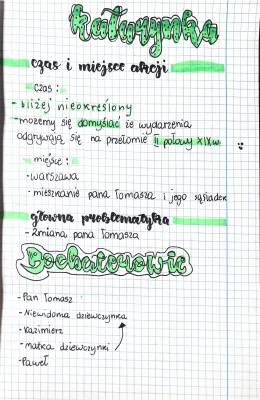 Katarynka
czas i miejsce akcji
czas :
- bliżej nieokreślony
- możemy się domyślać że wydarzenia
odgrywają się na przełomie II połowy XIXw.
miejsce :
- warszawa
- mieszkanie pana Tomasza i jego sąsiadek
główna problematyka
- Zmiana pana Tomasza
Bochaterowie
- Pan Tomasz
- Niewidoma dziewczynka
- Kazimierz
- Matka dziewczynki
- Paweł